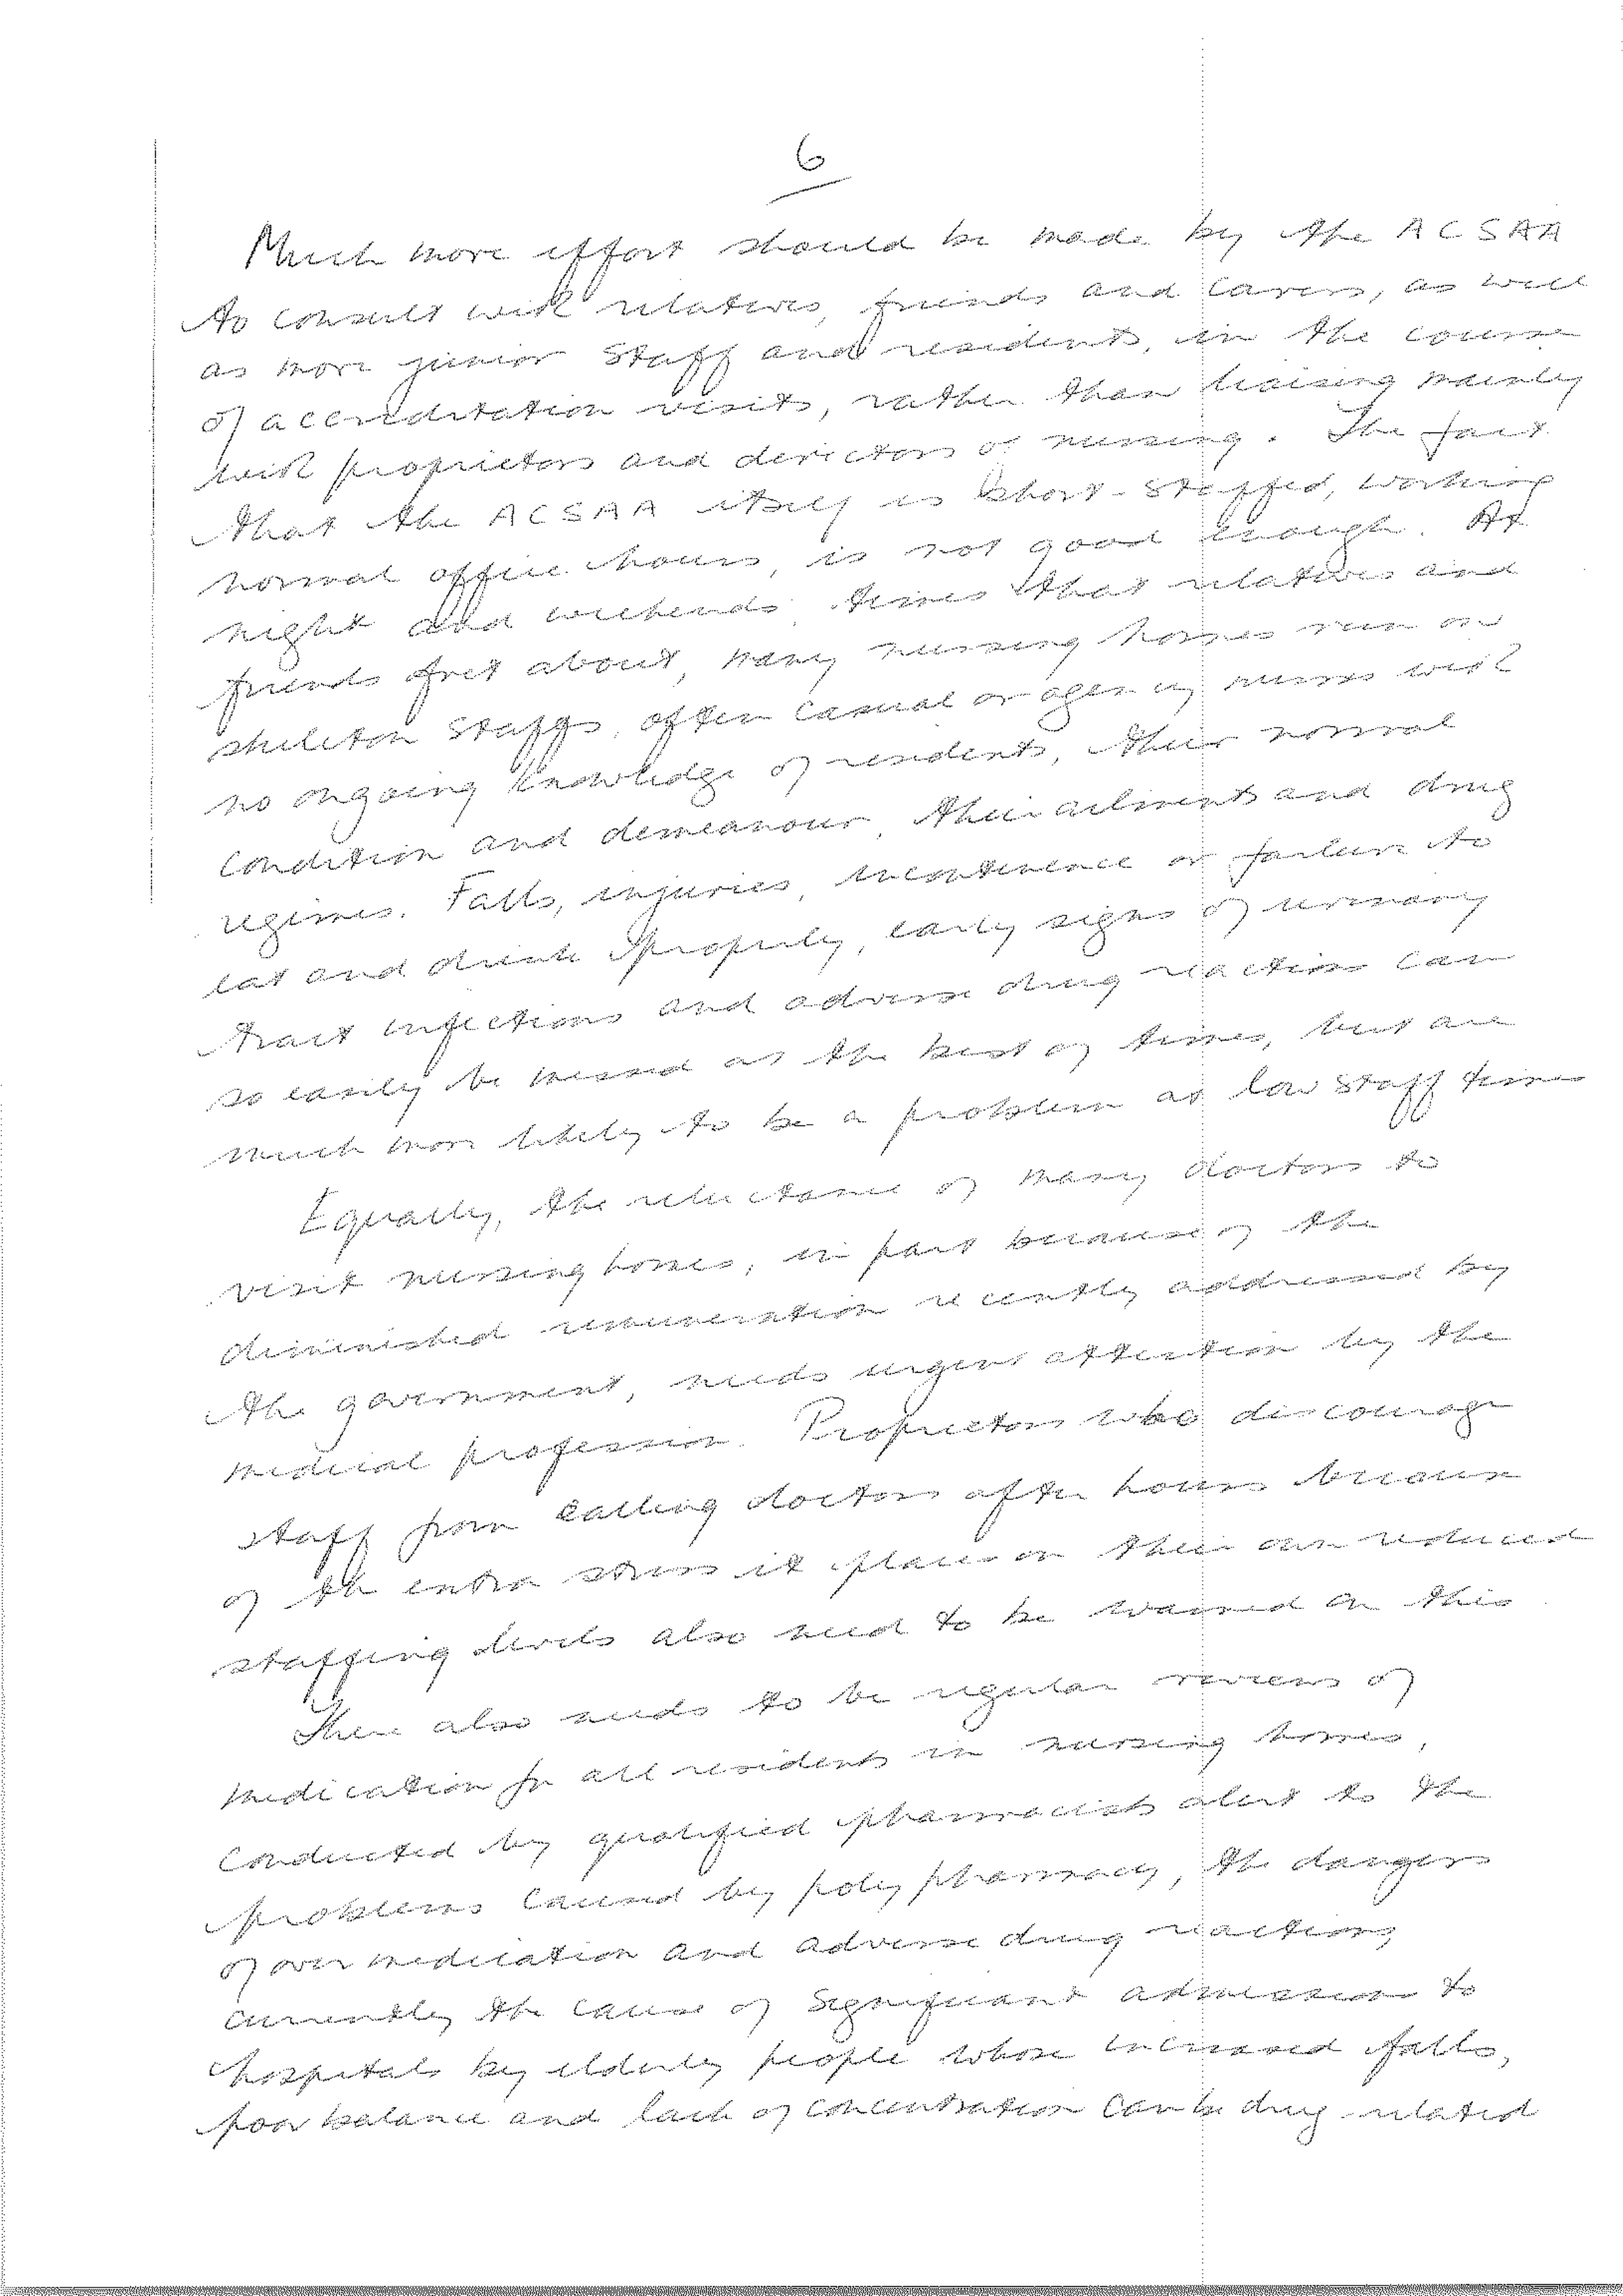 6
Much more effort should be made by the ACSAA
to consult with relatives, friends and carers, as well
as more junior staff and residents, in the course
of accreditation visits, rather than liaising mainly
with proprietors and directors of nursing. The fact
that the ACSAA itself is short-staffed, working
normal office hours, is not good enough. At
night and weekends, times that relatives and
friends fret about, many nursing homes run on
skeleton staffs, often casual or agency nurses with
no ongoing knowledge of residents, their normal
condition and demeanour, their ailments and drug
regimes. Falls, injuries, incontinence or failure to
eat and drink properly, early signs of urinary
tract infections and adverse drug reactions can
so easily be missed at the best of times, but are
much more likely to be a problem at low staff times
Equally, the reluctance of many doctors to
visit nursing homes, in part because of the
diminished remuneration recently addressed by
the government, needs urgent attention by the
medical profession. Proprietors who discourage
staff from calling doctors after hours because
of the extra stress it places on their own reduced
staffing levels also need to be warned on this
There also needs to be regular reviews of
medication for all residents in nursing homes,
conducted by qualified pharmacists alert to the
problems caused by poly pharmacy, the dangers
of over medication and adverse drug reactions,
currently the cause of significant admission to
hospitals by elderly people whose increased falls,
poor balance and lack of concentration can be drug related